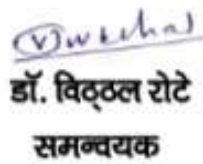 डॉ. विठ्ठल रोटे
समन्वयक